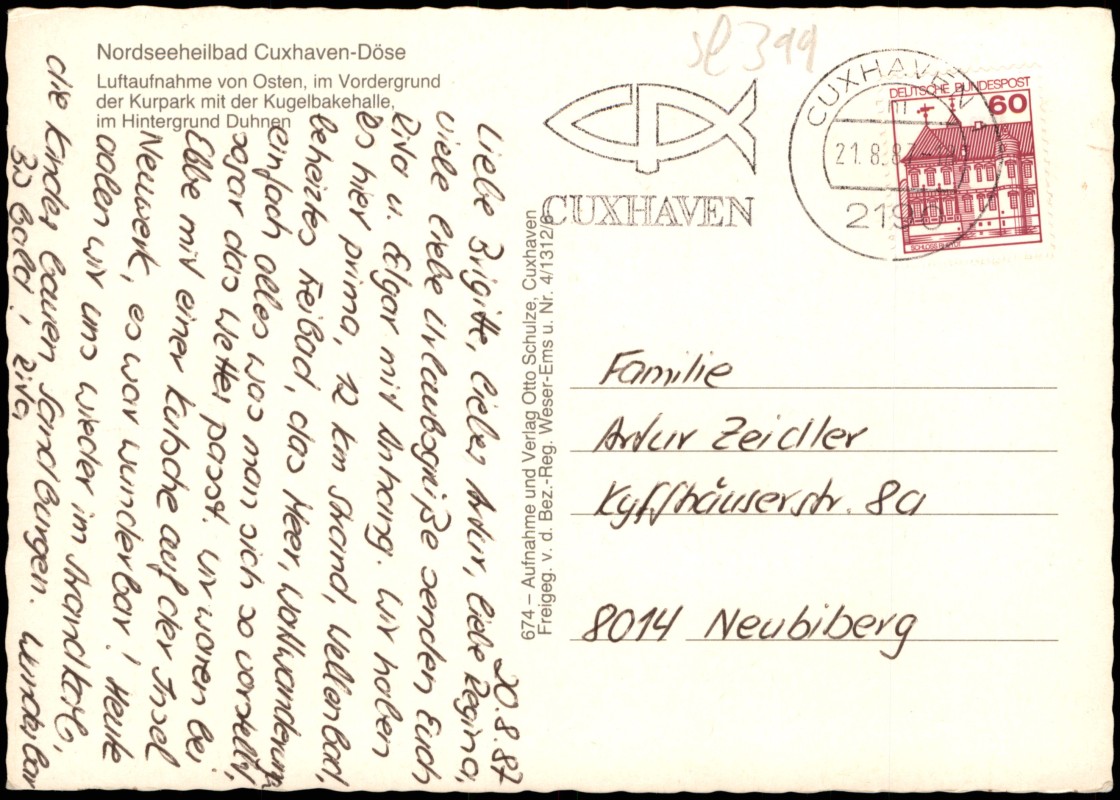 Nordseeheilbad Cuxhaven-Döse
Luftaufnahme von Osten, im Vordergrund
der Kurpark mit der Kugelbakehalle,
im Hintergrund Duhnen
20.8.87
Liebe Brigitte, lieber Artur, liebe Regina,
viele liebe Urlaubsgrüße senden Euch
u. Edgar mit Anhang. Wir haben
es hier prima, 12 km Strand, Wellenbad,
beheiztes Freibad, das Meer, Wattwanderung
einfach alles was man sich so vorstellt,
sogar das Wetter passt. Wir waren bei
Ebbe mit einer Kutsche auf der Insel
Neuwerk, es war wunderbar! Heute
aalen wir uns wieder im Strandkorb,
die Kinder bauen Sandburgen. Wunderbar
Bis bald!
674 – Aufnahme und Verlag Otto Schulze, Cuxhaven
Freigeg. v. d. Bez.-Reg. Weser-Ems u. Nr. 4/1312/6
sl 399
CUXHAVEN
CUXHAVEN
21.8.87
2190
DEUTSCHE BUNDESPOST
60
SCHLOSS RHEYDT
Familie
Artur Zeidler
Kyffhäuserstr. 8a
8014 Neubiberg